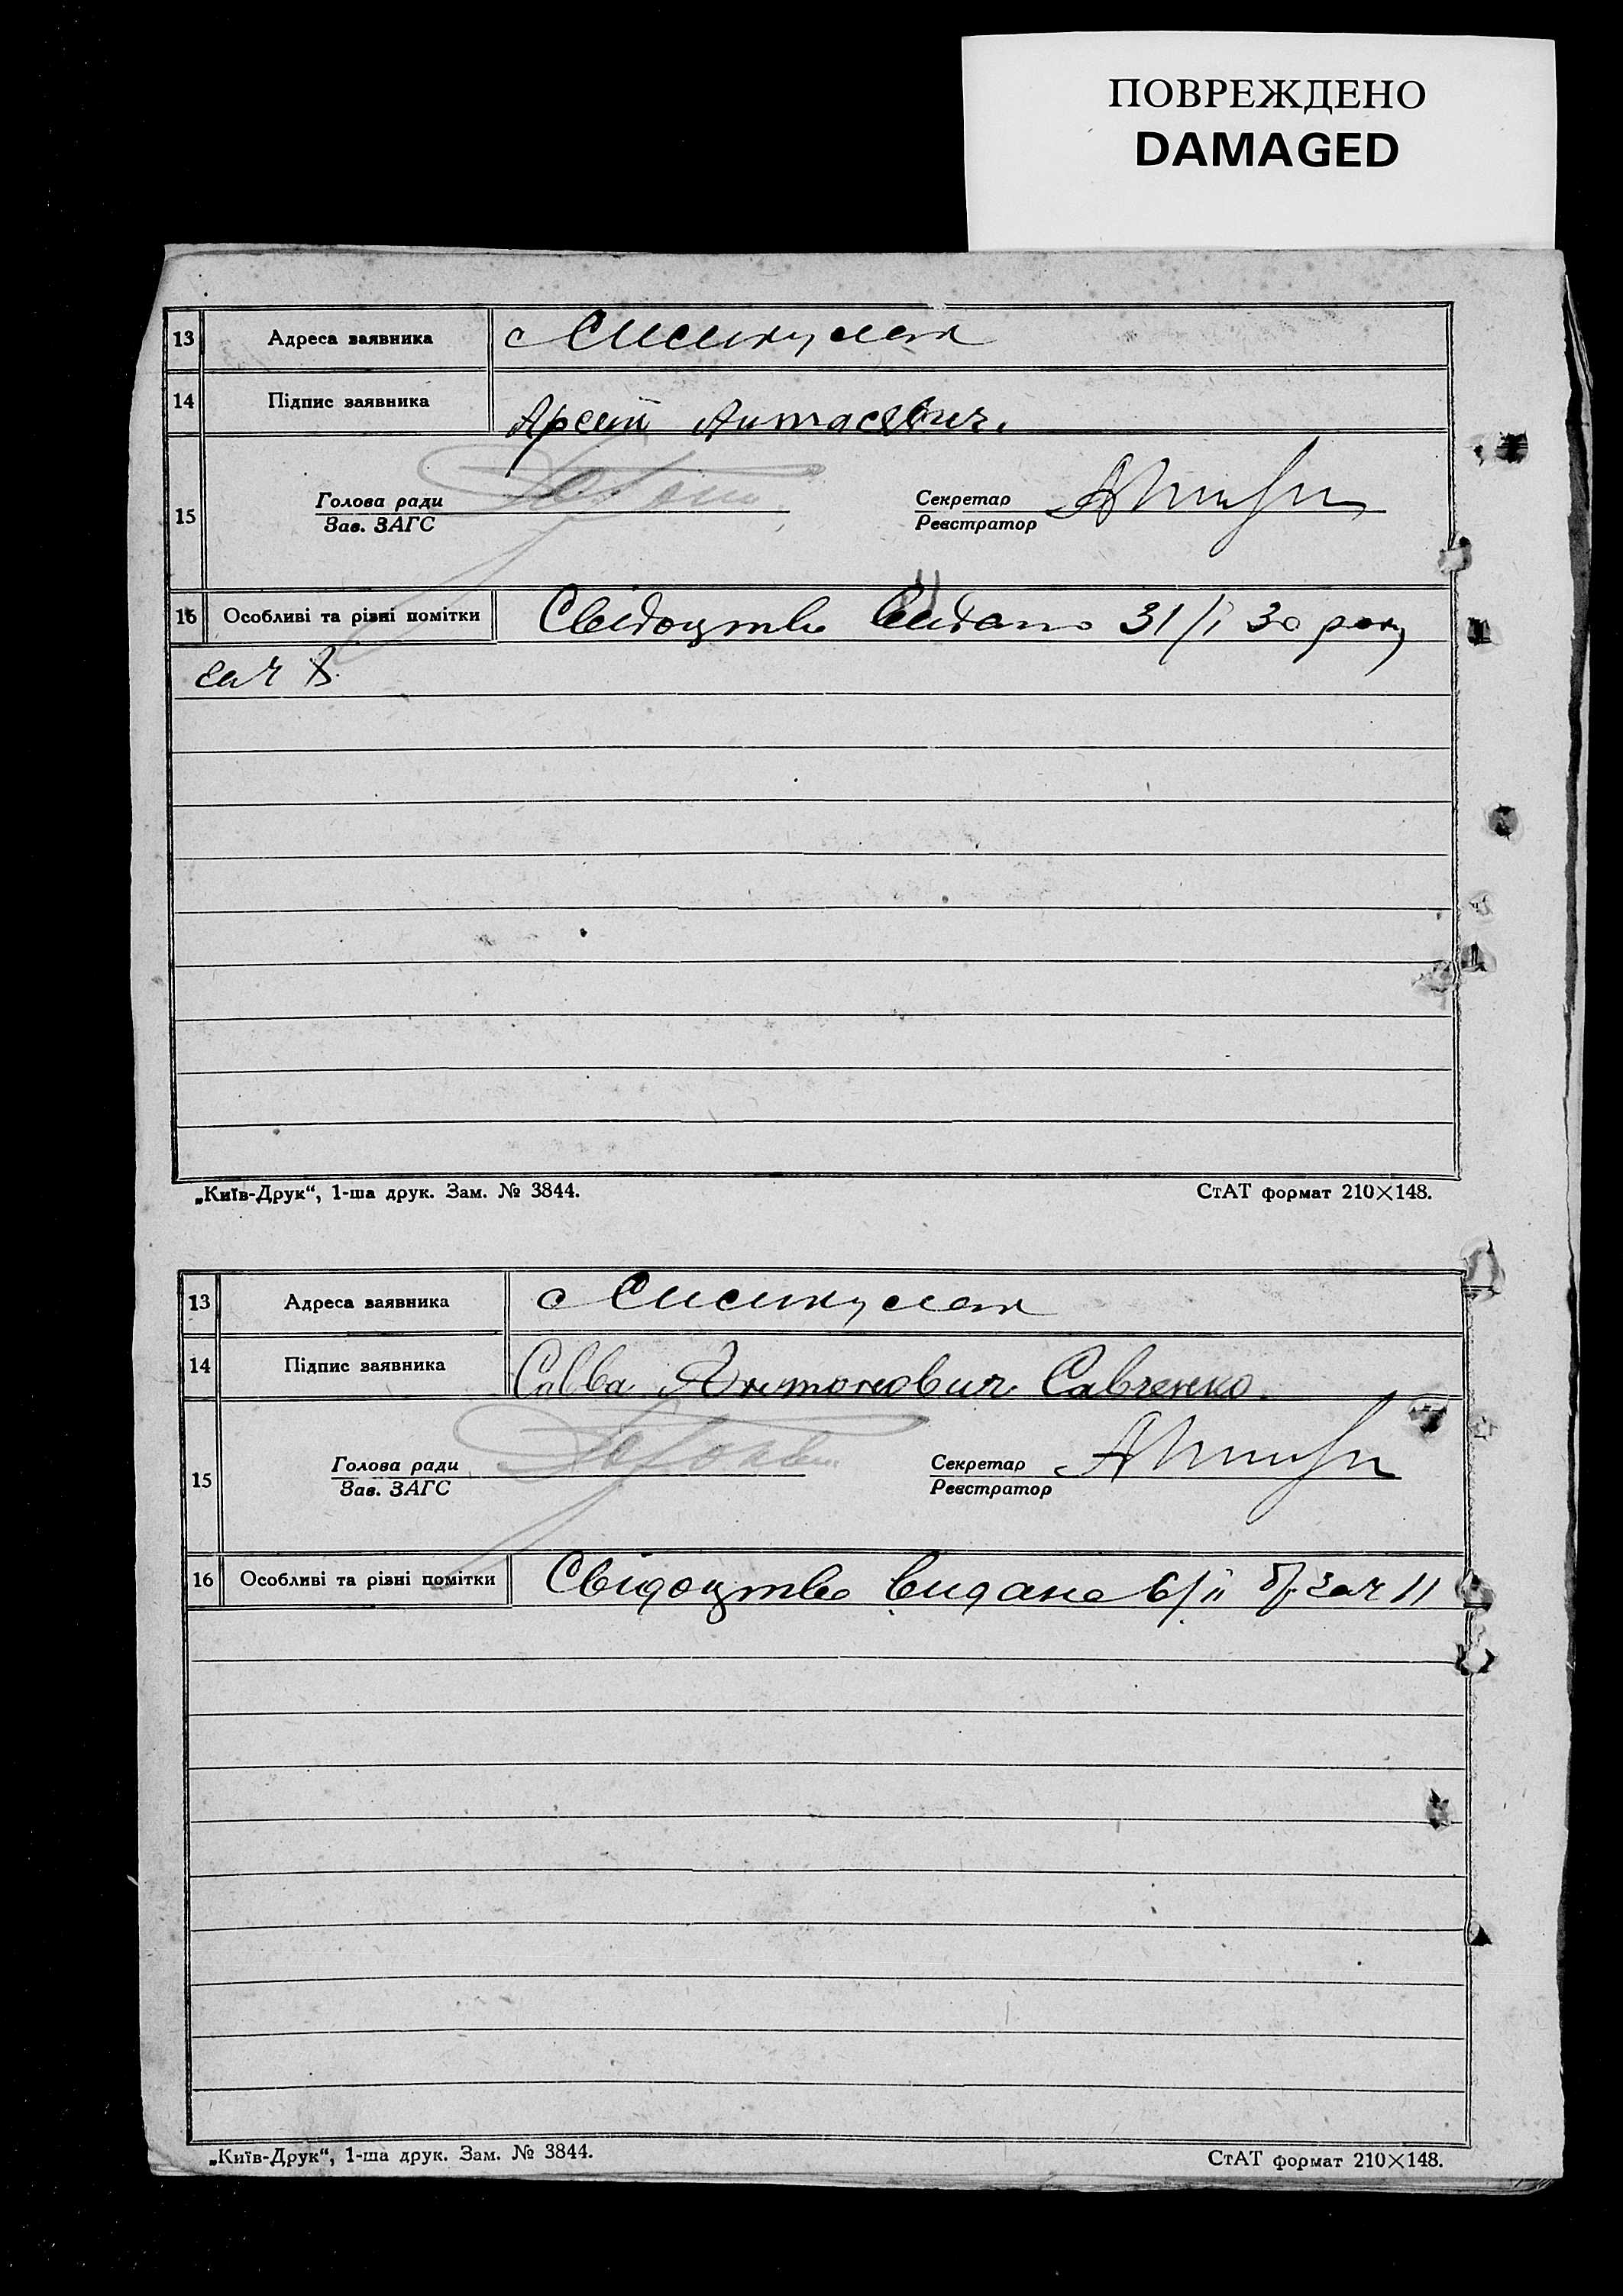 ПОВРЕЖДЕНО
DAMAGED
13 Адреса заявника с
14 Підпис заявника
Голова ради Секретар
15 Зав. ЗАГС Реєстратор
16 Особливі та різні помітки Свідоцтво видано 31/І 30 року
„Київ-Друк“, 1-ша друк. Зам. № 3844. СтАТ формат 210×148.
13 Адреса заявника с
14 Підпис заявника Савва Антонович Савченко
Голова ради Секретар
15 Зав. ЗАГС Реєстратор
16 Особливі та різні помітки Свідоцтво видане 6/ІІ 11
„Київ-Друк“, 1-ша друк. Зам. № 3844. СтАТ формат 210×148.